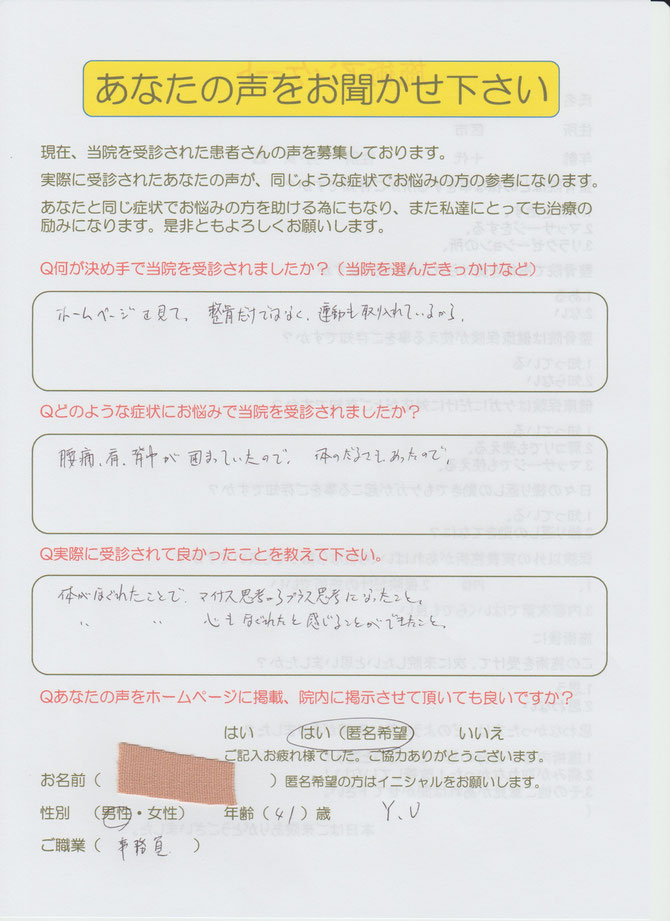 あなたの声をお聞かせ下さい
現在、当院を受診された患者さんの声を募集しております。
実際に受診されたあなたの声が、同じような症状でお悩みの方の参考になります。
あなたと同じ症状でお悩みの方を助ける為にもなり、また私達にとっても治療の
励みになります。是非ともよろしくお願いします。
Q何が決め手で当院を受診されましたか？（当院を選んだきっかけなど）
ホームページを見て。整骨だけではなく、運動も取り入れているから。
Qどのような症状にお悩みで当院を受診されましたか？
腰痛、肩、背中が固まっていたので。体のだるさもあったので。
Q実際に受診されて良かったことを教えて下さい。
体がほぐれたことで、マイナス思考からプラス思考になったこと。
〃 〃 心もほぐれたと感じることができたこと。
Qあなたの声をホームページに掲載、院内に掲示させて頂いても良いですか？
はい はい（匿名希望） いいえ
ご記入お疲れ様でした。ご協力ありがとうございます。
お名前（ ）匿名希望の方はイニシャルをお願いします。
性別 （男性・女性） 年齢（41）歳 Y.U
ご職業（ 事務員 ）